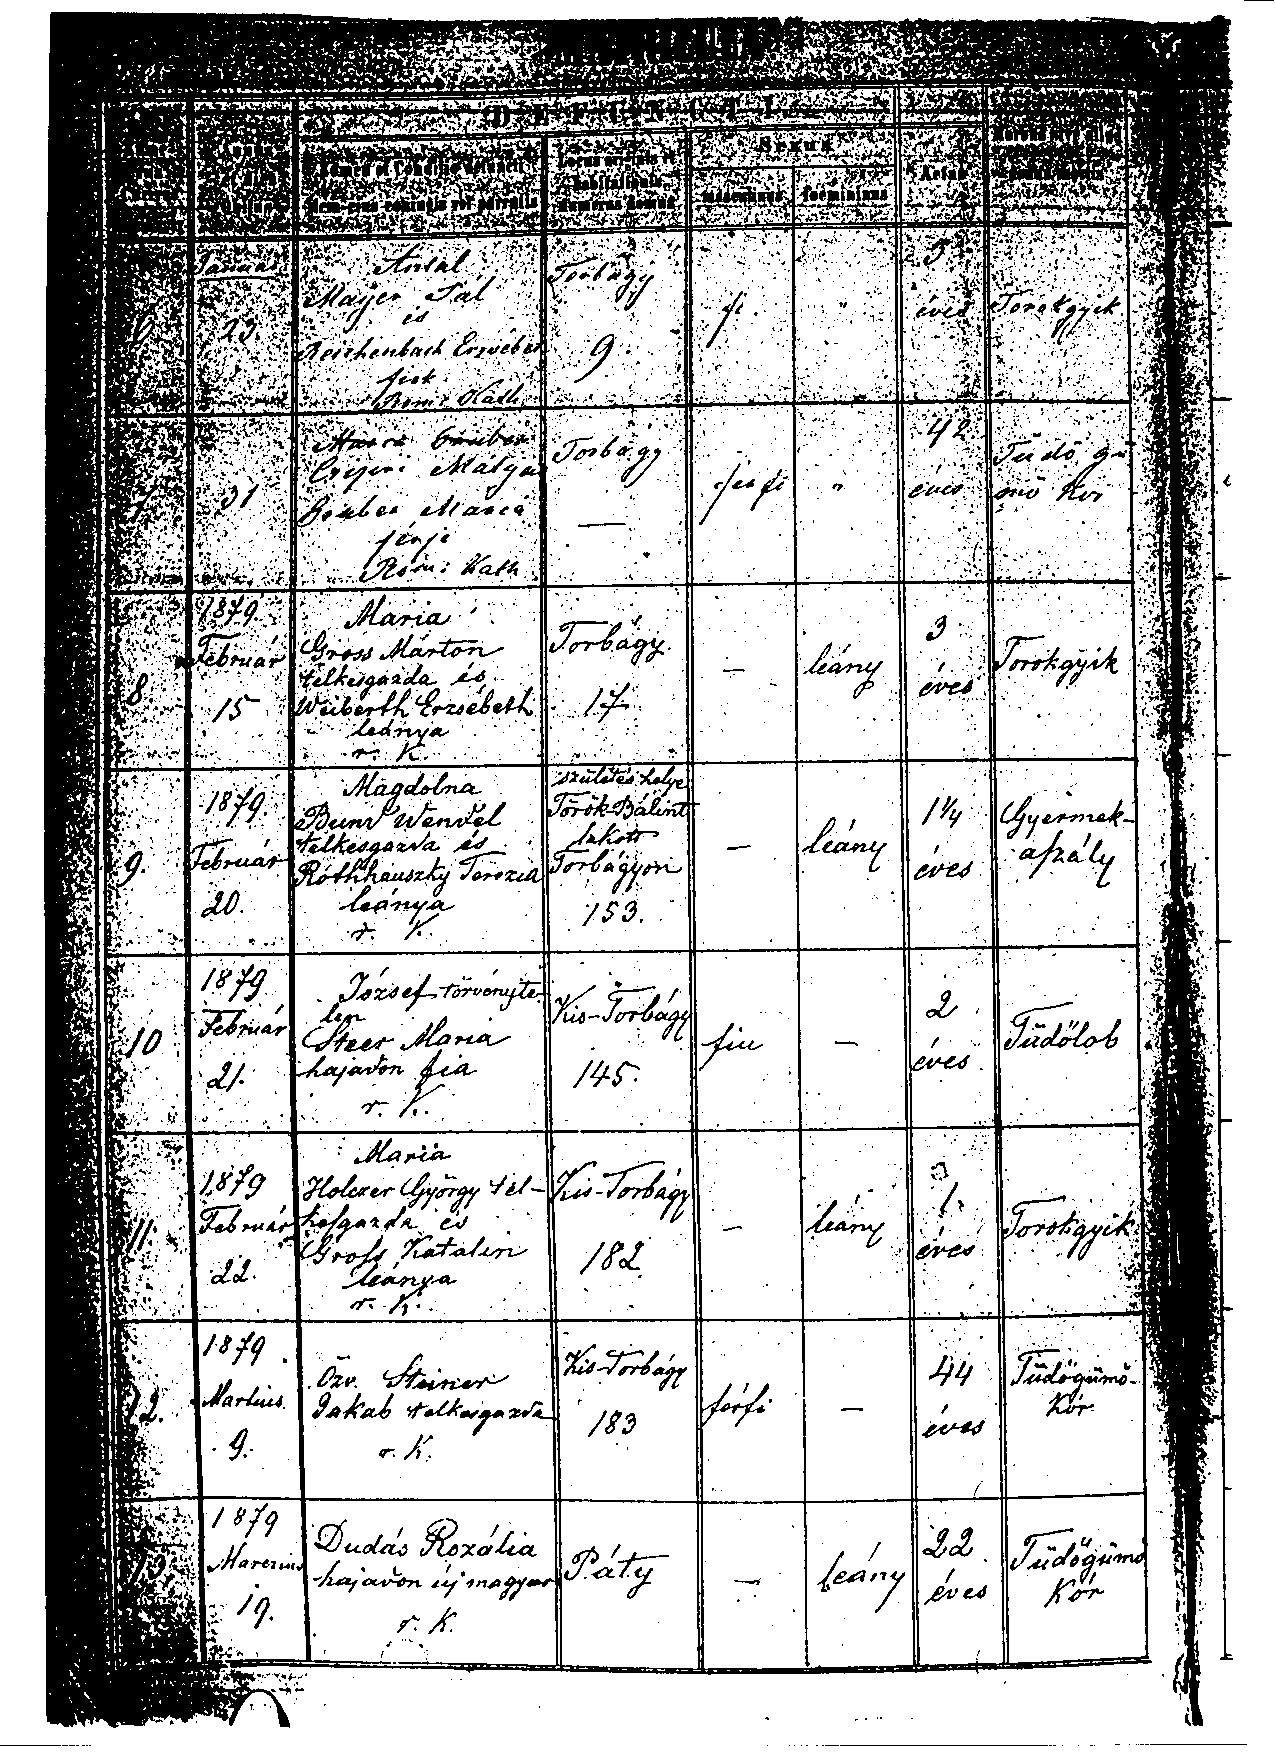 DEFUNCTI
Nomen et Conditio defuncti
Nomenque conjugis vel parentis
Locus originis et
habitationis
Numerus domus
Sexus
masculinus
foemininus
Aetas
Januar
23.
Antal
Mayer Pál
és
Reichenbach Erzsébet
Róm: Kath.
Torbágy
9.
fi
"
5
éves
Torokgyik
31
Mátyás
Gruber Maria
férje
Róm: Kath
Torbágy
—
férfi
"
42
éves
Tüdő gü
mő kór
8
1879.
Február
15
Maria
Gross Márton
telkesgazda és
Weiberth Erzsébeth
leánya
r. K.
Torbágy.
17.
—
leány
3
éves
Torokgyik
9.
1879.
Február
20.
Magdolna
Wendel
telkesgazda és
Terezia
leánya
r. K.
születés helye
Török-Bálint
lakott
Torbágyon
153.
—
leány
1¼
éves
Gyermek-
aszály
10
1879
Február
21.
József törvényte-
len
Steer Maria
hajadon fia
r. K.
Kis-Torbágy
145.
fiu
—
2
éves
Tüdőlob
11.
1879
Február
22.
Maria
Holczer György tel-
kesgazda és
Gross Katalin
leánya
r. K.
Kis-Torbágy
182
—
leány
1.
éves
Torokgyik
12.
1879
Martius.
9.
Özv. Steiner
Jakab telkesgazda
r. K.
Kis-Torbágy
183
férfi
—
44
éves
Tüdőgümő-
Kór
13.
1879
Marczius
19.
Dudás Rozália
hajadon új magyar
r. K.
Páty
—
leány
22
éves
Tüdőgümő
Kór